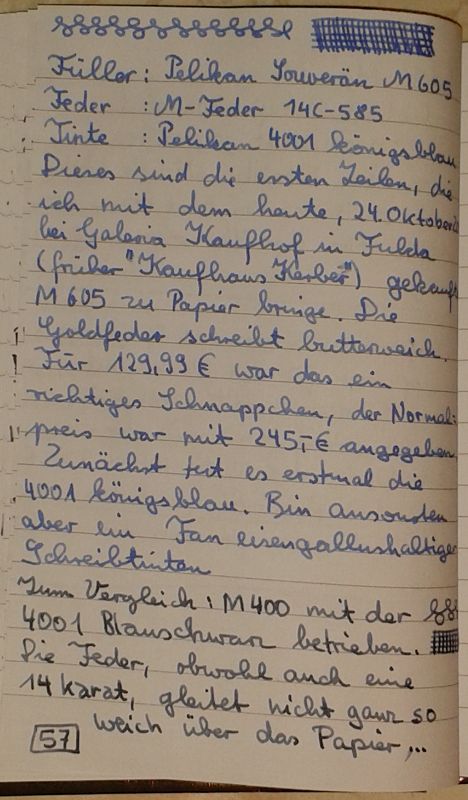 Füller: Pelikan Souverän M605
Feder : M-Feder 14C-585
Tinte : Pelikan 4001 königsblau
Dieses sind die ersten Zeilen, die
ich mit dem heute, 24. Oktober
bei Galeria Kaufhof in Fulda
(früher "Kaufhaus Kerber") gekauft
M605 zu Papier bringe. Die
Goldfeder schreibt butterweich.
Für 129,99 € war das ein
richtiges Schnäppchen, der Normal-
preis war mit 245,-€ angegeben
Zunächst tut es erstmal die
4001 königsblau. Bin ansonsten
aber ein Fan eisengallushaltiger
Schreibtinten
Zum Vergleich: M400 mit der
4001 Blauschwarz betrieben.
Die Feder, obwohl auch eine
14 karat, gleitet nicht ganz so
weich über das Papier,...
57